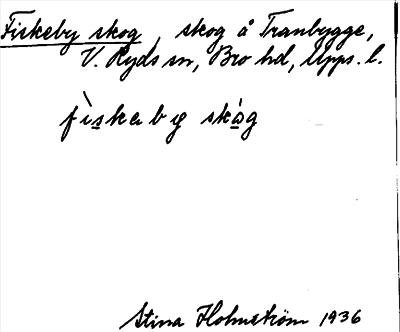 Fiskeby skog, skog å Tranbygge,
V. Ryds sn, Bro hd, Upps. l.
fìskaby skóg
Stina Holmström 1936